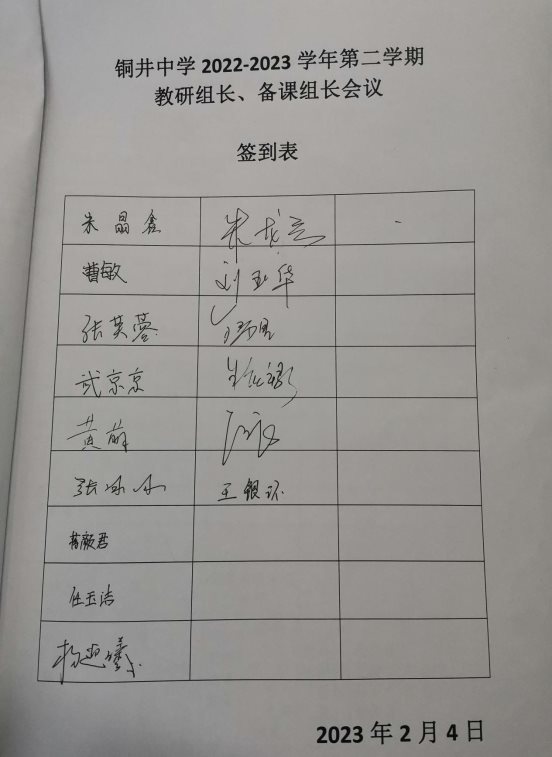 铜井中学 2022-2023 学年第二学期
教研组长、备课组长会议
签到表
朱晶鑫
曹敏 刘玉华
张芙蓉
武京京
黄萌
张冰冰 王银环
蒋颜君
任玉洁
2023 年 2 月 4 日